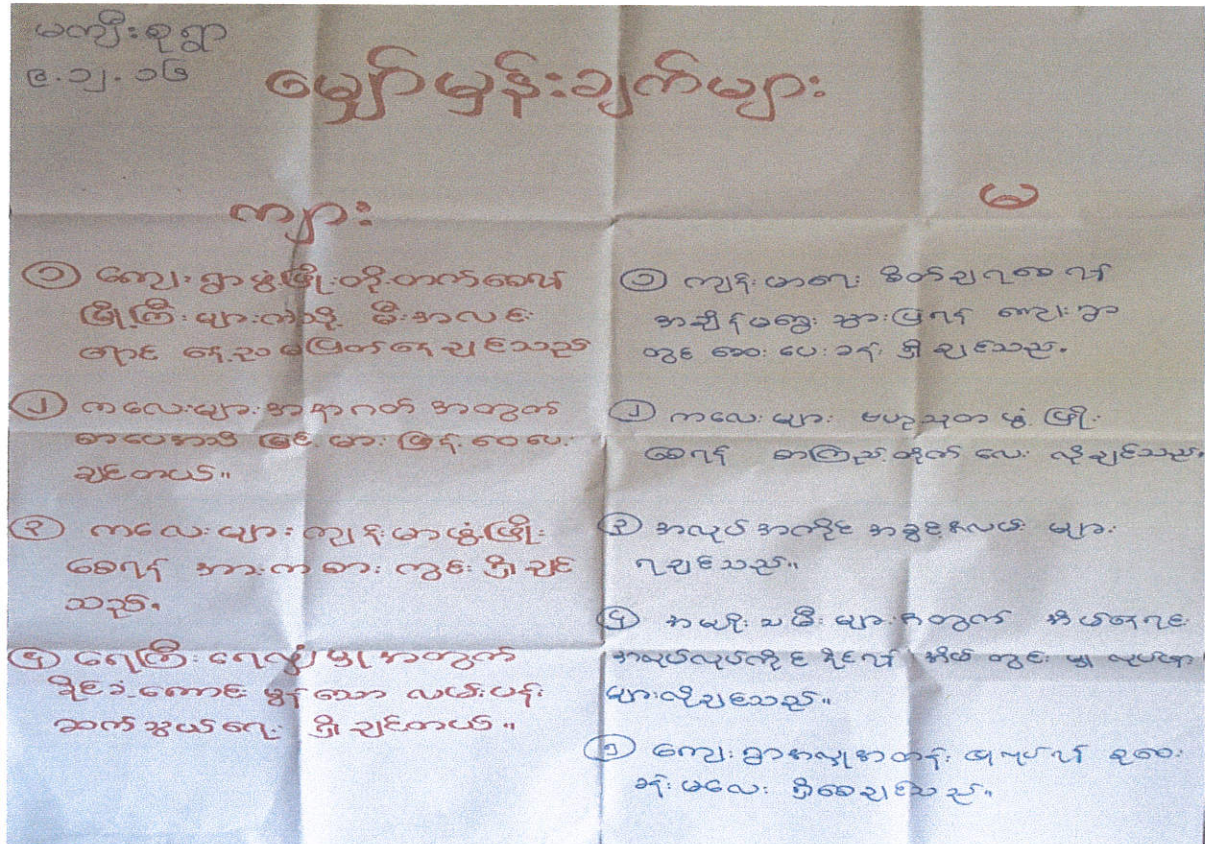 မကျီးစုရွာ
၉.၁၂.၁၆
မျှော်မှန်းချက်များ
ကျား
၁ ကျေးရွာဖွံ့ဖြိုးတိုးတက်စေရန်
မြို့ကြီးများကဲ့သို့ မီးအလင်း
ရောင် နေ့ညမပြတ်နေချင်သည်
၂ ကလေးများအနာဂတ် အတွက်
စာပေအသိ မြင့်မားဖြန့်ဝေပေး
ချင်တယ်။
၃ ကလေးများ ကျန်းမာဖွံ့ဖြိုး
စေရန် အားကစား ကွင်းရှိချင်
သည်။
၄ ရေကြီးရေလျှံမှုအတွက်
ခိုင်ခံ့ကောင်းမွန်သော လမ်းပန်း
ဆက်သွယ်ရေး ရှိချင်တယ်။
မ
၁ ကျန်းမာရေး စိတ်ချရစေရန်
အချိန်မရွေး သွားပြရန် ကျေးရွာ
တွင် ဆေးပေးခန်းရှိချင်သည်။
၂ ကလေးများ ဗဟုသုတ ဖွံ့ဖြိုး
စေရန် စာကြည့်တိုက်လေး လိုချင်သည်။
၃ အလုပ်အကိုင် အခွင့်အလမ်းများ
ရချင်သည်။
၄ အမျိုးသမီးများအတွက် အိမ်နေရင်း
အလုပ်လုပ်ကိုင်နိုင်ရန် အိမ်တွင်းမှု လုပ်ငန်း
များလိုချင်သည်။
၅ ကျေးရွာအလှူအတန်း ပြုလုပ်ရန် စုဝေး
ခန်းမလေး ရှိစေချင်သည်။